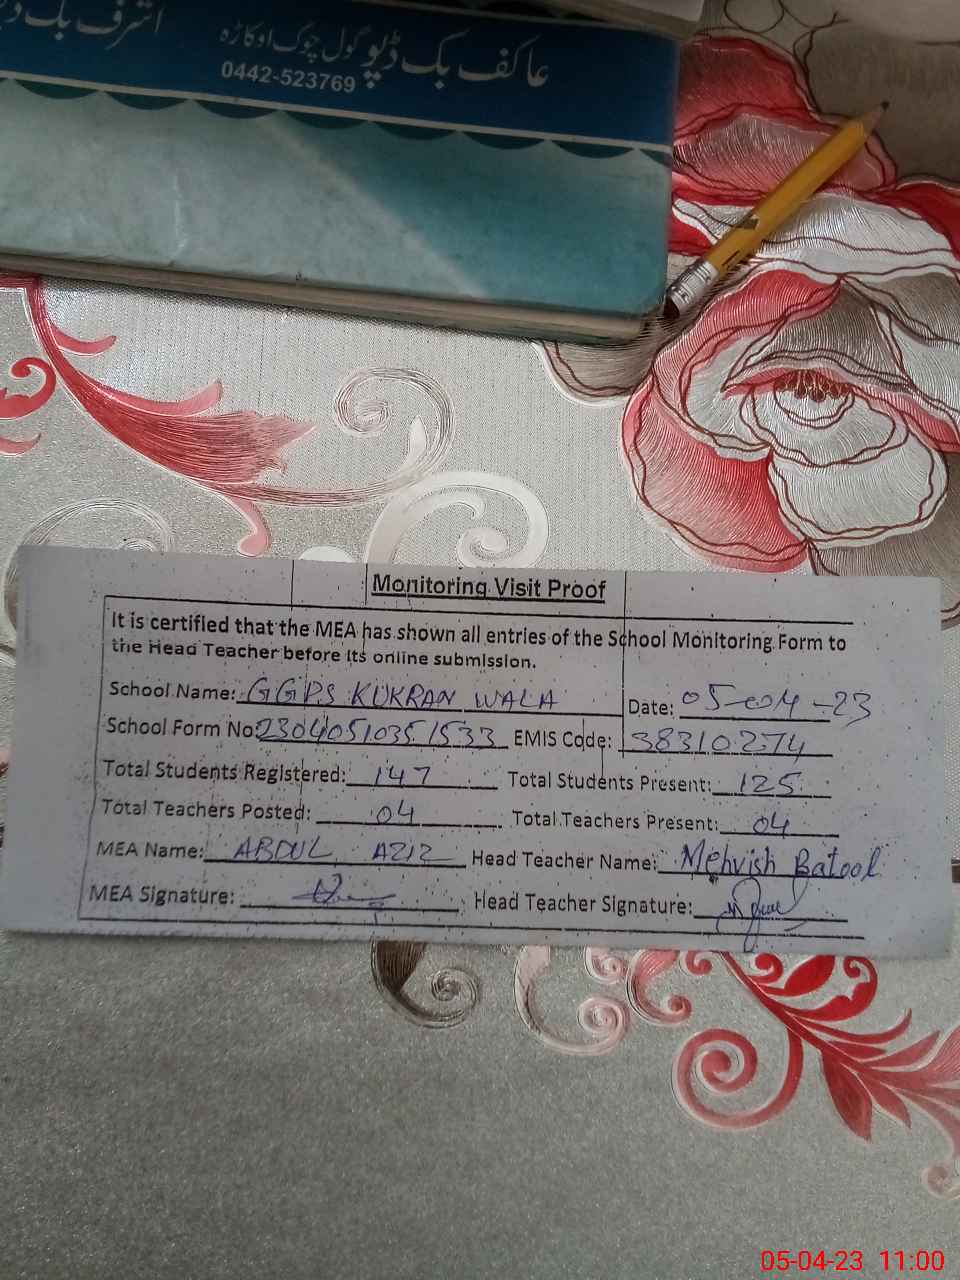 اشرف بک
عاکف بک ڈپو گول چوک اوکاڑہ
0442-523769
Monitoring Visit Proof
It is certified that the MEA has shown all entries of the School Monitoring Form to
the Head Teacher before its online submission.
School Name: GGPS KUKRAN WALA Date: 05-04-23
School Form No: 23040510351533 EMIS Code: 38310274
Total Students Registered: 147 Total Students Present: 125
Total Teachers Posted: 04 Total Teachers Present: 04
MEA Name: ABDUL AZIZ Head Teacher Name: Mehvish Batool
MEA Signature: Head Teacher Signature:
05-04-23 11:00